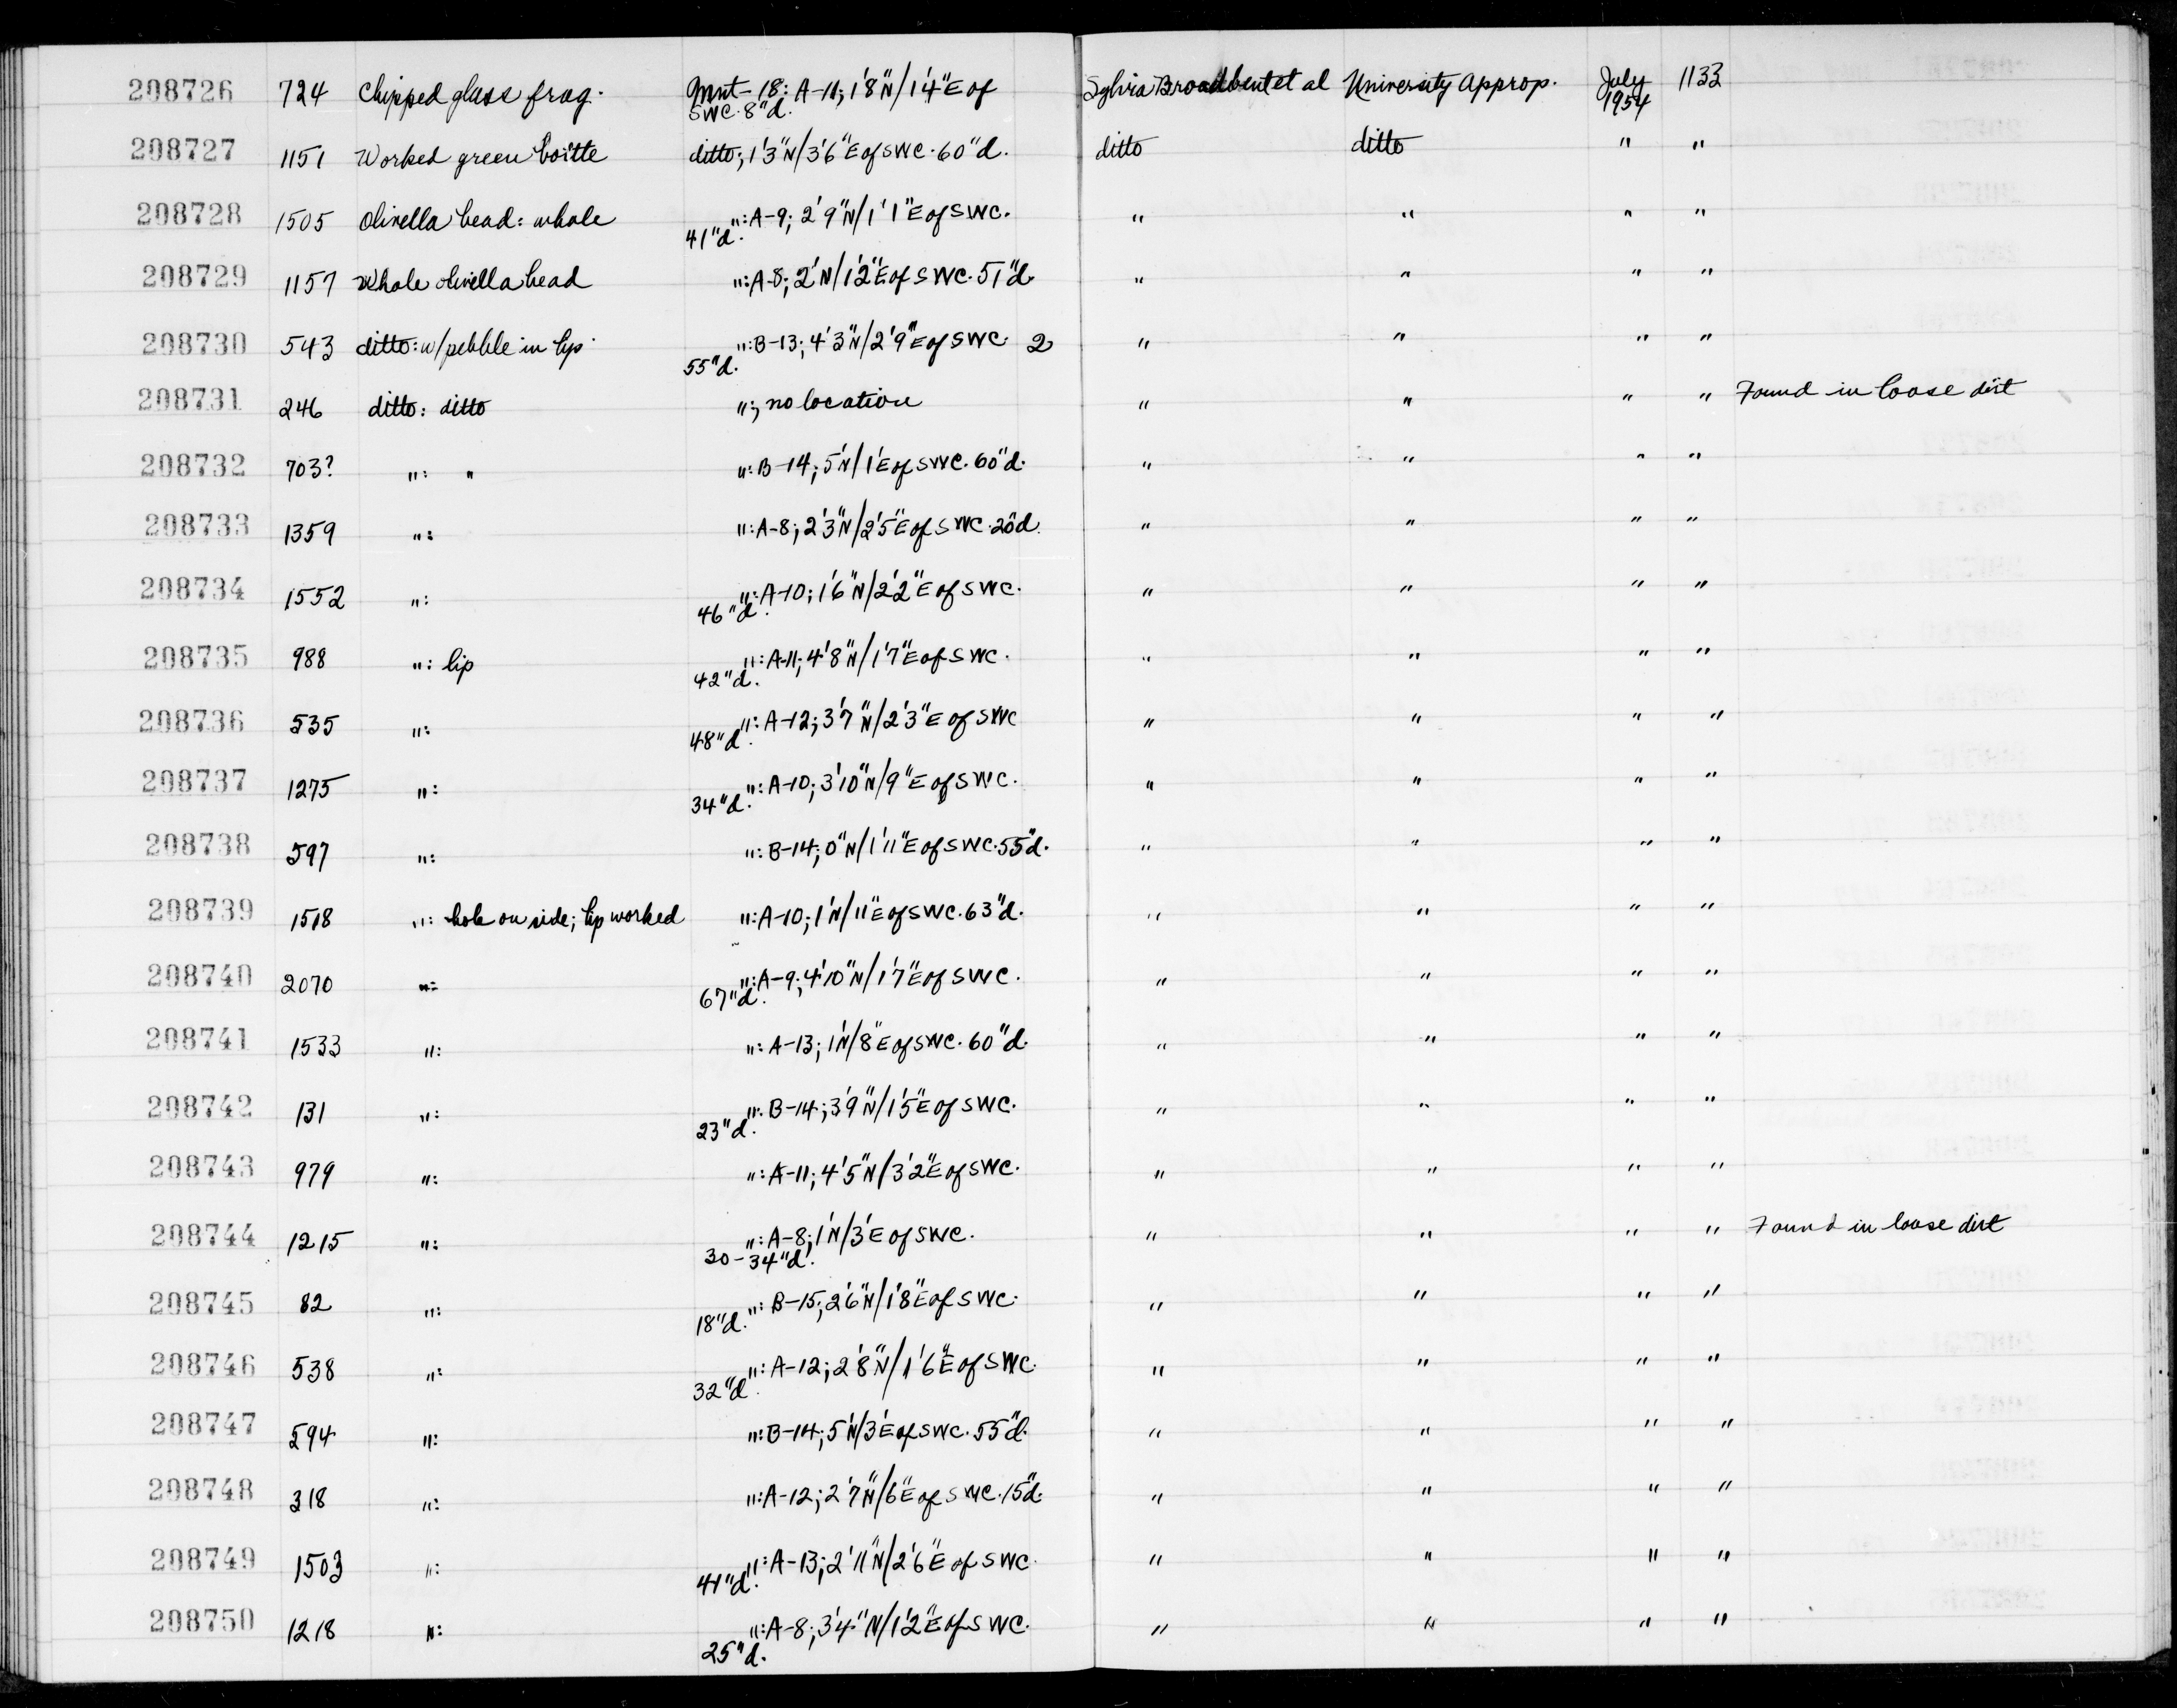 208726 724 Chipped glass frag. Mnt-18: A-11; 1'8"N/1'4"E of Sylvia Broadbent et al University Approp. July 1133
SWC. 8"d. 1954
208727 1151 Worked green bottle ditto; 1'3"N/3'6"E of SWC. 60"d. ditto ditto " "
208728 1505 Olivella bead: whole ":A-9; 2'9"N/1'1"E of SWC. " " " "
41"d.
208729 1157 Whole olivella bead ":A-8; 2'N/1'2"E of SWC. 51"d. " " " "
208730 543 ditto: w/pebble in lip. ":B-13; 4'3"N/2'9"E of SWC. 2 " " " "
55"d.
208731 246 ditto: ditto "; no location " " " " Found in loose dirt
208732 703? ": " ":B-14; 5'N/1'E of SWC. 60"d. " " " "
208733 1359 ": ":A-8; 2'3"N/2'5"E of SWC. 20"d. " " " "
208734 1552 ": ":A-10; 1'6"N/2'2"E of SWC. " " " "
46"d.
208735 988 ": lip ":A-11; 4'8"N/1'7"E of SWC. " " " "
42"d.
208736 535 ": ":A-12; 3'7"N/2'3"E of SWC " " " "
48"d.
208737 1275 ": ":A-10; 3'10"N/9"E of SWC. " " " "
34"d.
208738 597 ": ":B-14; 0"N/1'11"E of SWC. 55"d. " " " "
208739 1518 ": hole on side; lip worked ":A-10; 1'N/11"E of SWC. 63"d. " " " "
208740 2070 ": ":A-9; 4'10"N/1'7"E of SWC. " " " "
67"d.
208741 1533 ": ":A-13; 1'N/8"E of SWC. 60"d. " " " "
208742 131 ": ":B-14; 3'9"N/1'5"E of SWC. " " " "
23"d.
208743 979 ": ":A-11; 4'5"N/3'2"E of SWC. " " " "
208744 1215 ": ":A-8; 1'N/3'E of SWC. " " " " Found in loose dirt
30-34"d.
208745 82 ": ":B-15; 2'6"N/1'8"E of SWC. " " " "
18"d.
208746 538 ": ":A-12; 2'8"N/1'6"E of SWC. " " " "
32"d.
208747 594 ": ":B-14; 5'N/3'E of SWC. 55"d. " " " "
208748 318 ": ":A-12; 2'7"N/6"E of SWC. 15"d. " " " "
208749 1503 ": ":A-13; 2'11"N/2'6"E of SWC. " " " "
41"d.
208750 1218 ": ":A-8; 3'4"N/1'2"E of SWC. " " " "
25"d.